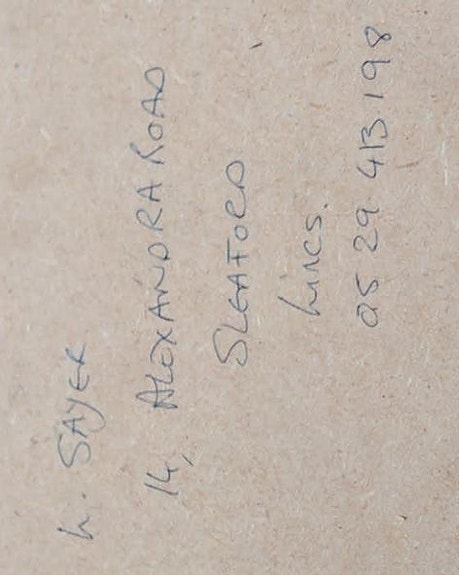 L. SAYER
14, ALEXANDRA ROAD
SLEAFORD
Lincs.
0529 413198